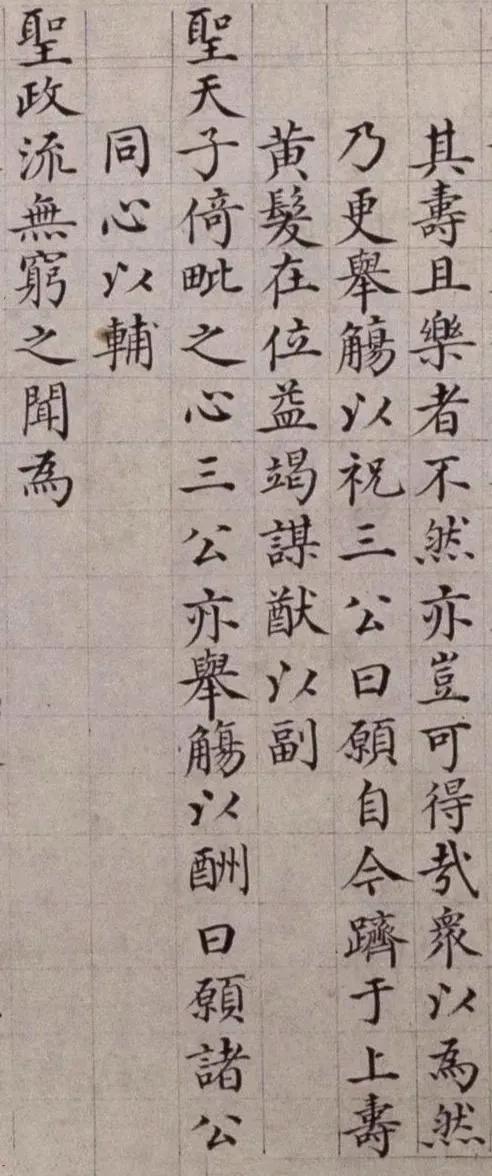 其壽且樂者不然亦豈可得哉衆以為然
乃更舉觴以祝三公曰願自今躋于上壽
黃髮在位益竭謀猷以副
聖天子倚毗之心三公亦舉觴以酬曰願諸公
同心以輔
聖政流無窮之聞為